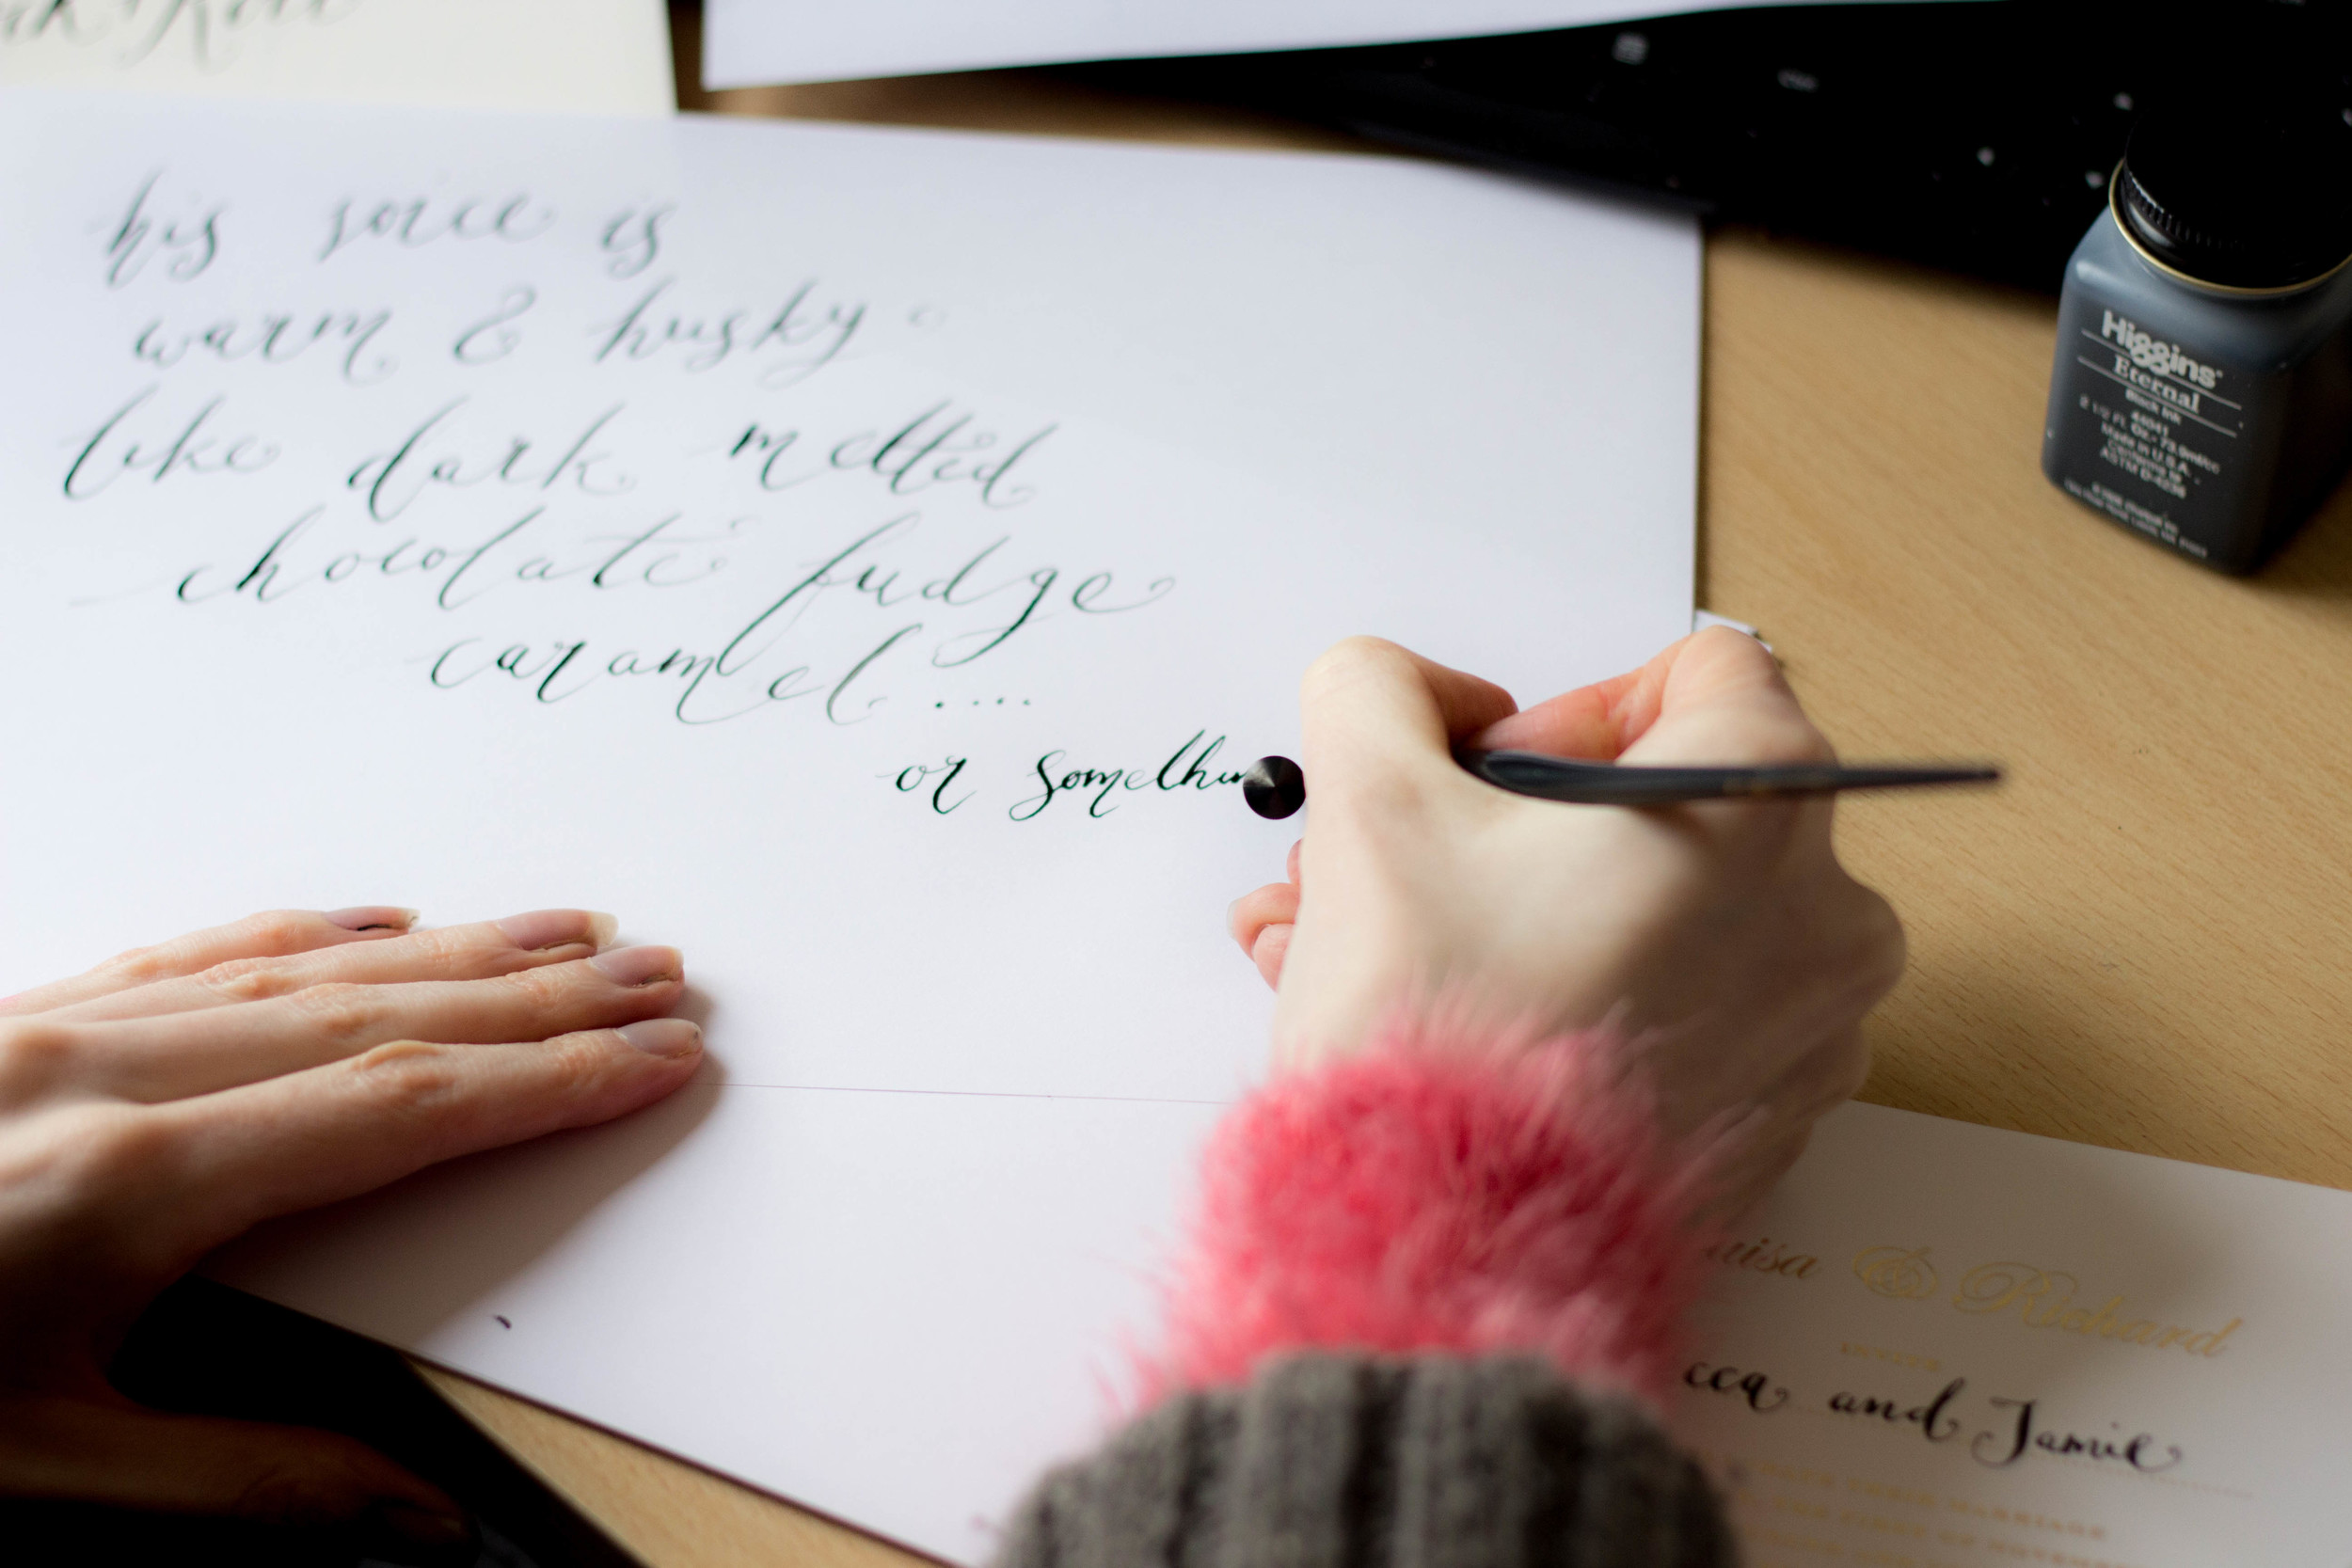 his voice is
warm & husky
like dark melted
chocolate fudge
caramel ....
or somethin
Higgins
Eternal
Black Ink
44041
2 1/2 Fl. Oz.- 73.9ml/cc
Made in U.S.A.
ASTM D-4236
uisa & Richard
INVITE
cca and Jamie
MARRIAGE